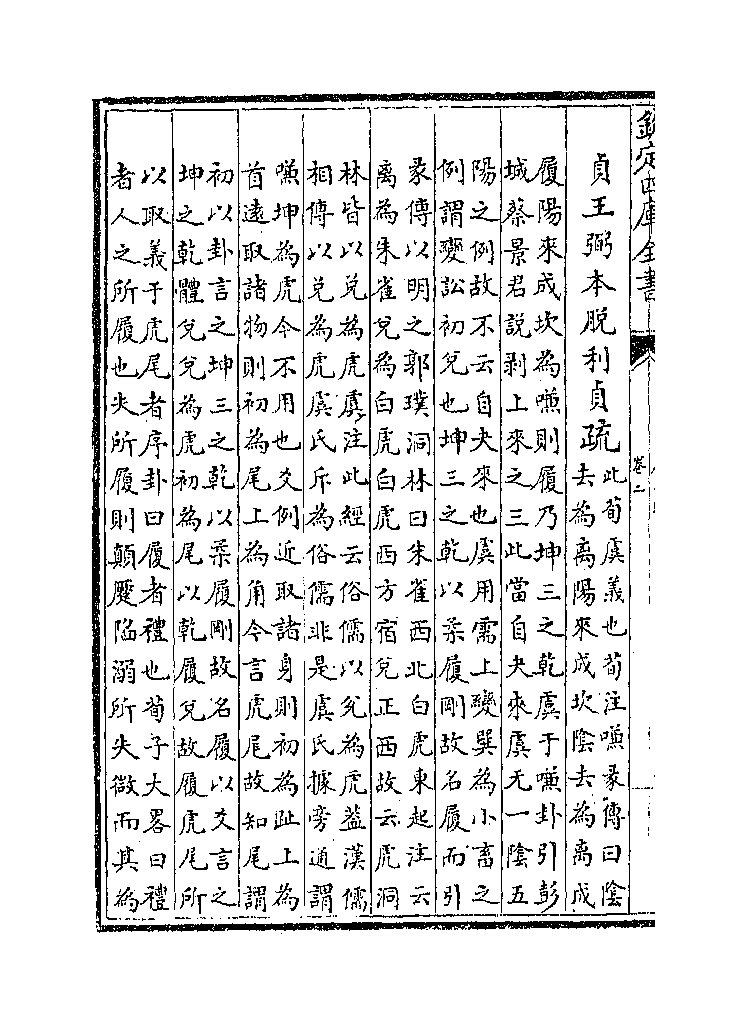 欽定四庫全書
卷二
貞王弼本脫利貞疏
此荀虞義也荀注嗛彖傳曰陰
去為離陽來成坎陰去為離成
履陽來成坎為嗛則履乃坤三之乾虞于嗛卦引彭
城蔡景君說剥上來之三此當自夬來虞无一陰五
陽之例故不云自夬來也虞用需上變巽為小畜之
例謂變訟初兌也坤三之乾以柔履剛故名履而引
彖傳以明之郭璞洞林曰朱雀西北白虎東起注云
離為朱雀兌為白虎白虎西方宿兌正西故云虎洞
林皆以兌為虎虞注此經云俗儒以兌為虎葢漢儒
相傳以兌為虎虞氏斥為俗儒非是虞氏據旁通謂
嗛坤為虎今不用也爻例近取諸身則初為趾上為
首遠取諸物則初為尾上為角今言虎尾故知尾謂
初以卦言之坤三之乾以柔履剛故名履以爻言之
坤之乾體兌兌為虎初為尾以乾履兌故履虎尾所
以取義于虎尾者序卦曰履者禮也荀子大畧曰禮
者人之所履也失所履則顛蹷陷溺所失微而其為